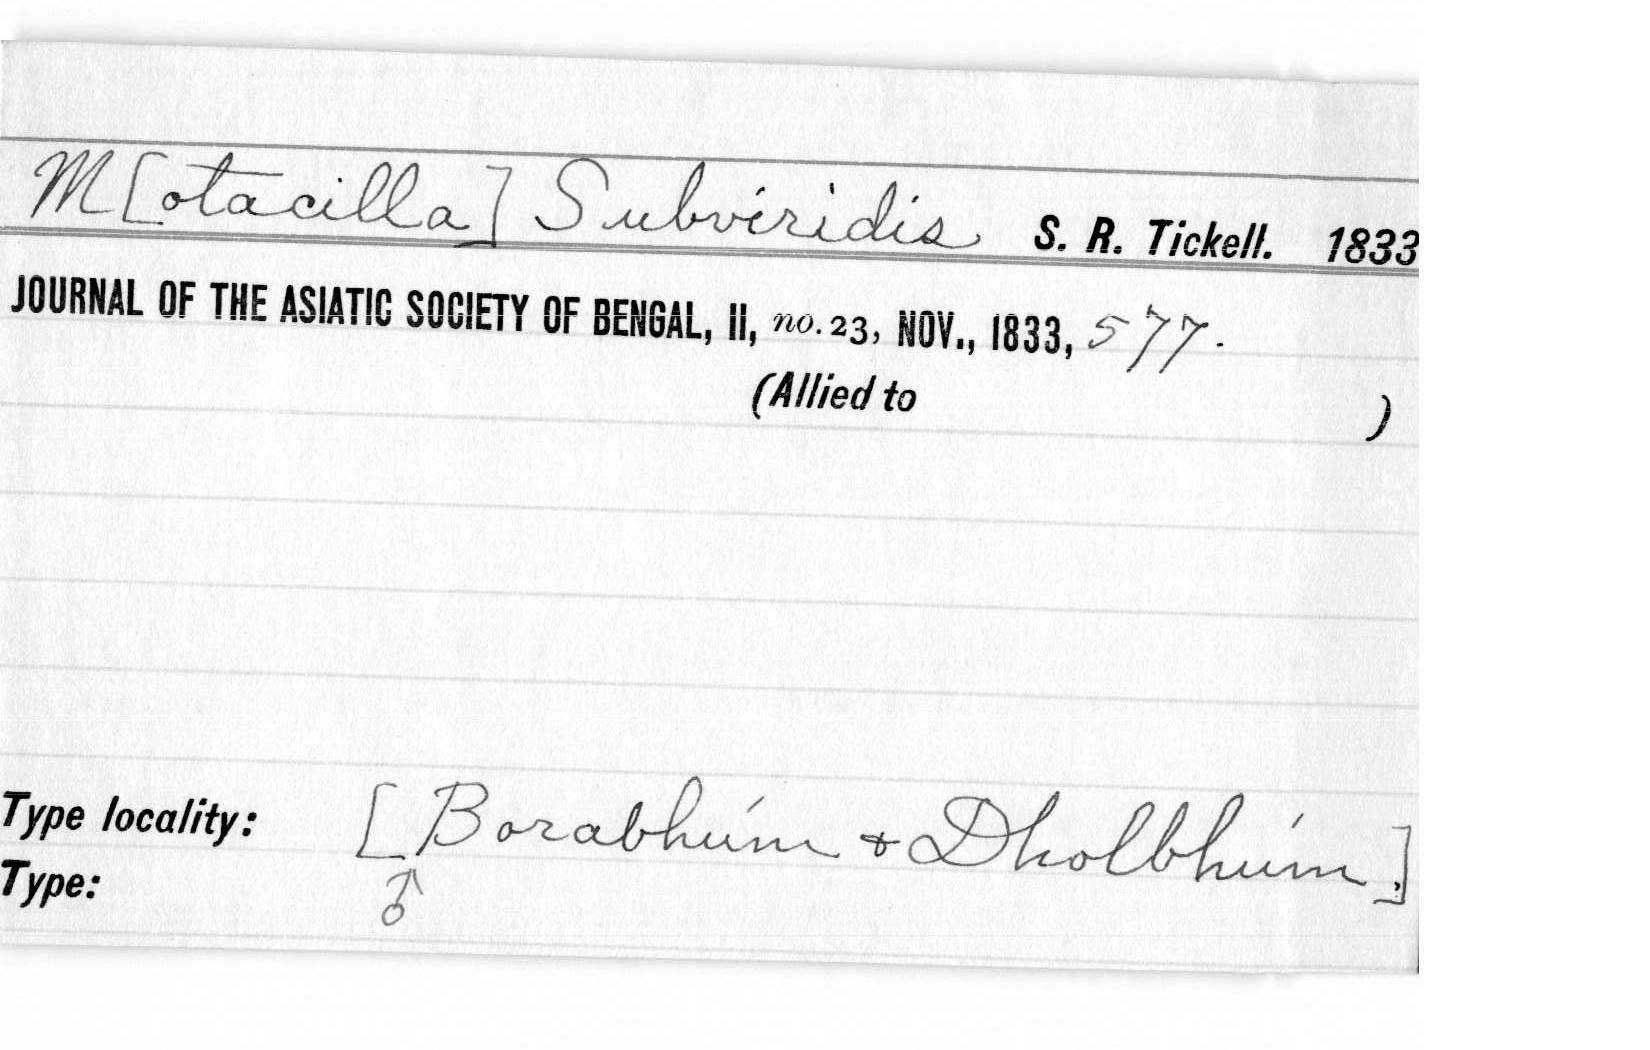 M[otacilla] Subviridis S. R. Tickell. 1833
JOURNAL OF THE ASIATIC SOCIETY OF BENGAL, II, no. 23, NOV., 1833, 577.
(Allied to )
Type locality: [Borabhúm & Dholbhúm.]
Type: ♂